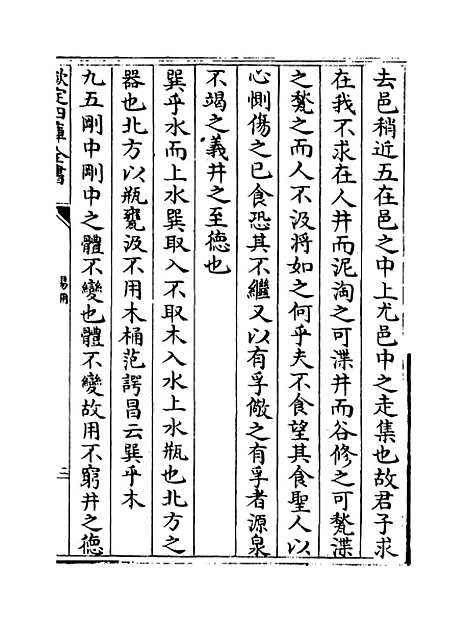 去邑稍近五在邑之中上尤邑中之走集也故君子求
在我不求在人井而泥淘之可渫井而谷修之可甃渫
之甃之而人不汲將如之何乎夫不食望其食聖人以
心惻傷之已食恐其不繼又以有孚儆之有孚者源泉
不竭之義井之至德也
巽乎水而上水巽取入不取木入水上水瓶也北方之
器也北方以瓶甕汲不用木桶范諤昌云巽乎木
九五剛中剛中之體不變也體不變故用不窮井之德
欽定四庫全書
易用
三